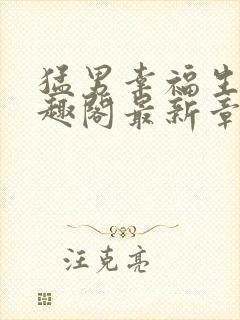 猛男幸福生
趣阁最新章
汪克亮